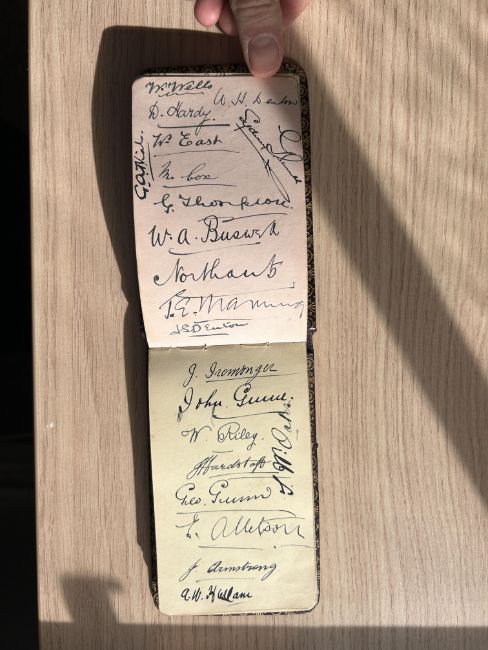 W. Wells
W. H. Denton
D. Hardy.
W. East
M. Cox
G. Thompson.
W. A. Buswell
Northants
T. E. Manning
J S Denton
J. Iremonger
John Gunn.
W. Riley.
J Hardstaff
T. W. Oates
Geo. Gunn
E. Alletson
J. Armstrong
A. W. Hallam